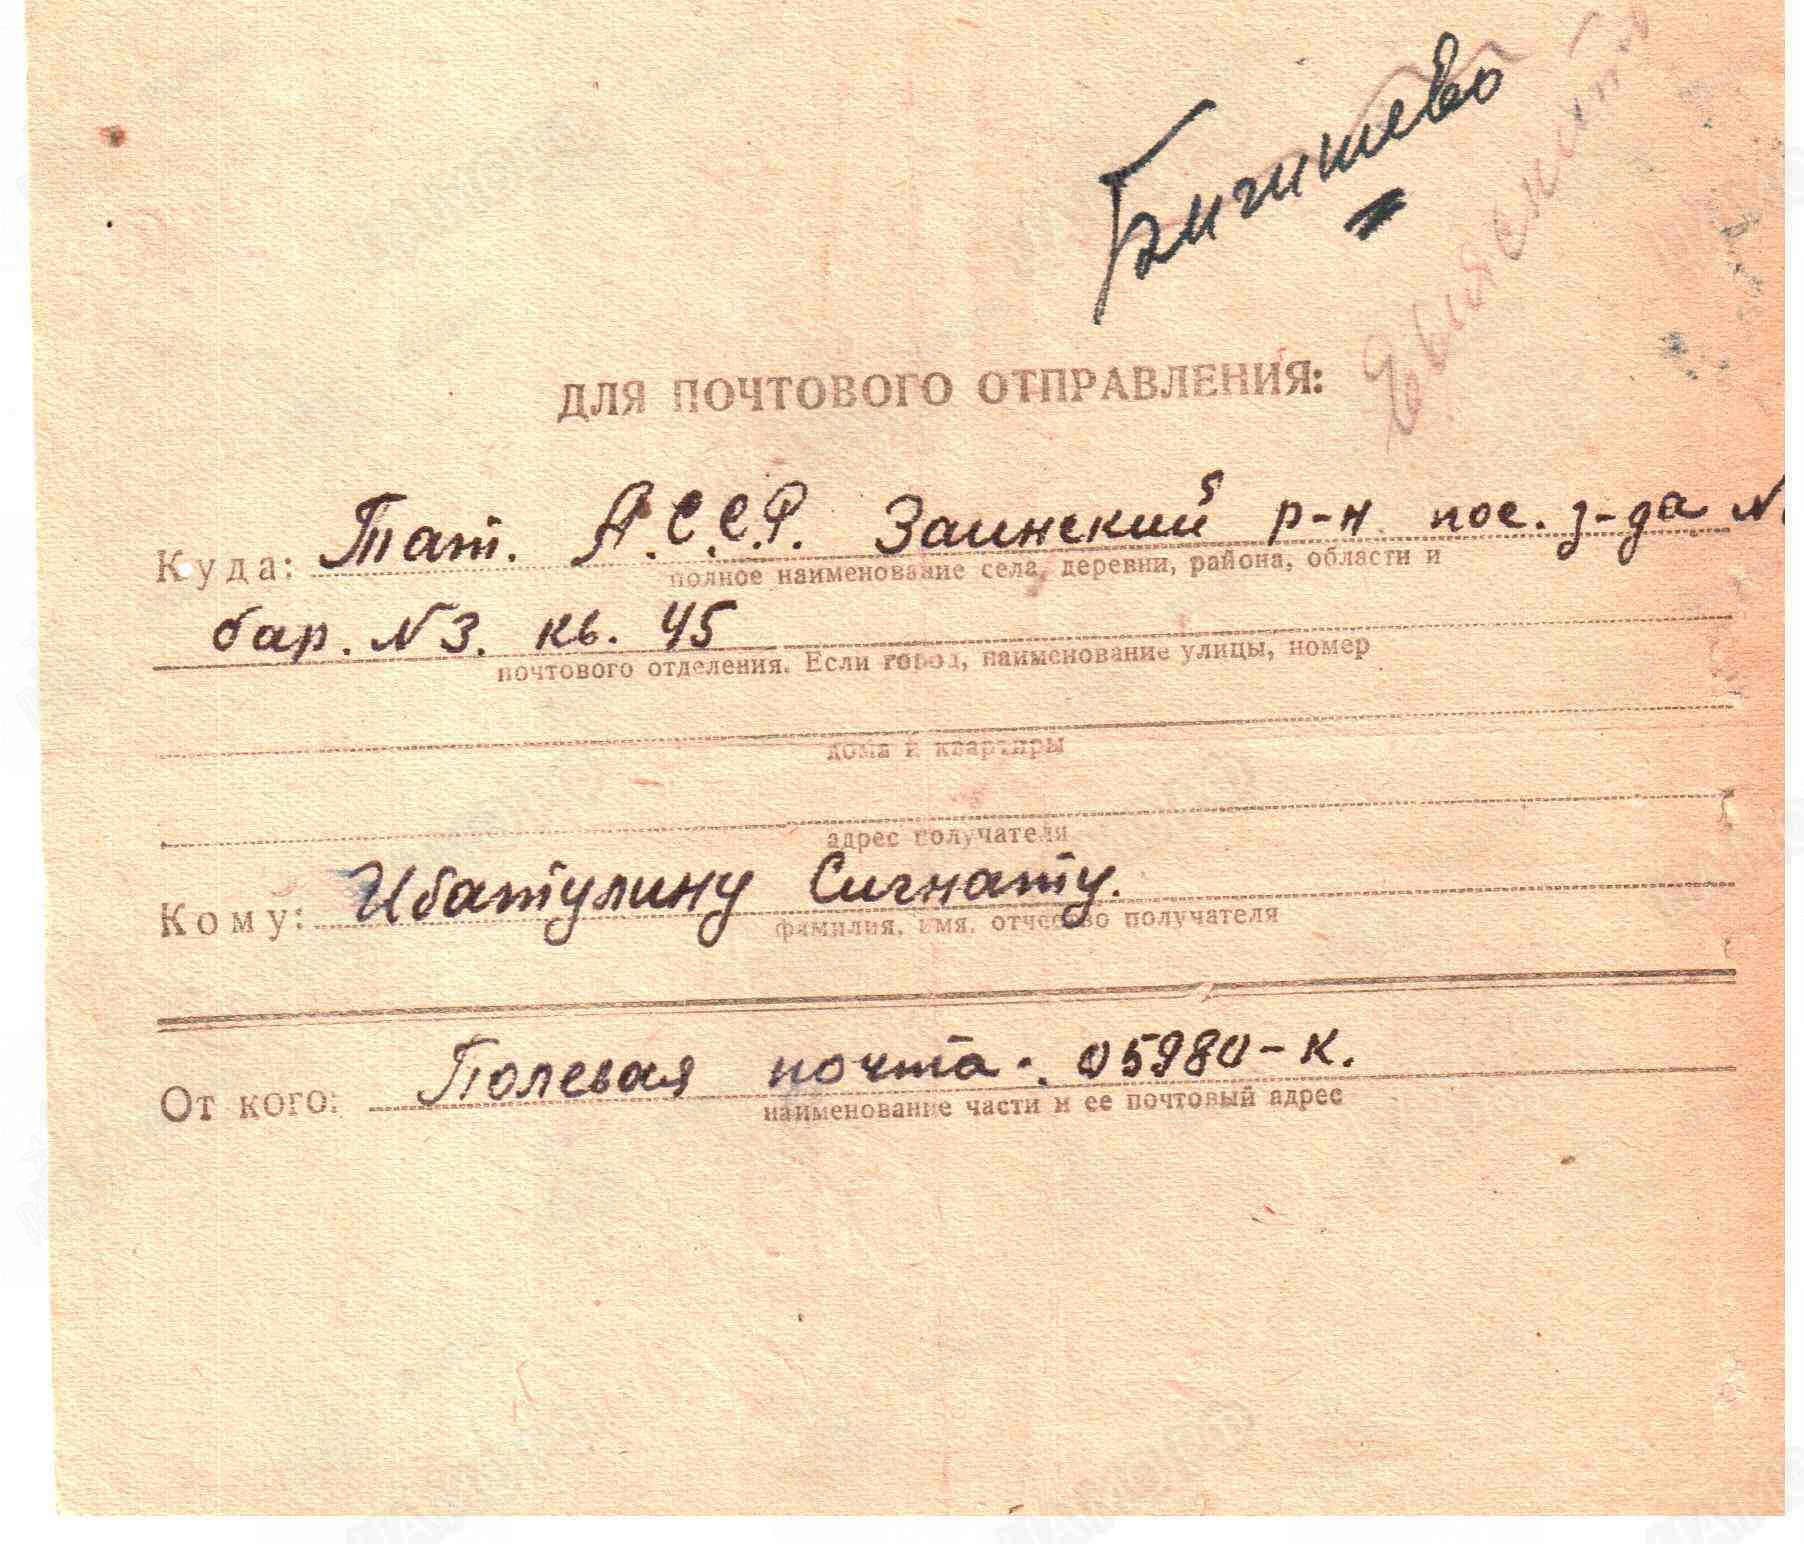 Бигишево
Выяснить
ДЛЯ ПОЧТОВОГО ОТПРАВЛЕНИЯ:
Куда: Тат. А.С.С.Р. Заинский р-н пос. з-да №
полное наименование села, деревни, района, области и
бар. №3. кв. 45
почтового отделения. Если город, наименование улицы, номер
дома и квартиры
адрес получателя
Кому: Ибатулину Сигнату.
фамилия, имя, отчество получателя
От кого: Полевая почта. 05980-К.
наименование части и ее почтовый адрес